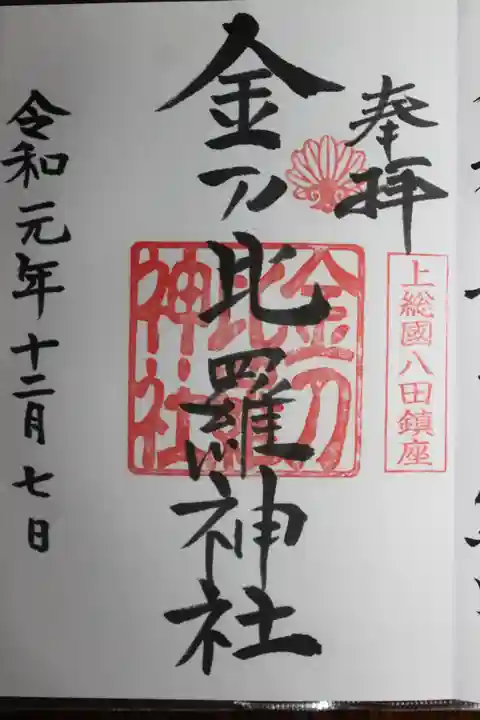 奉拝
上総國八田鎮座
金刀比羅神社
金刀比羅神社
令和元年十二月七日